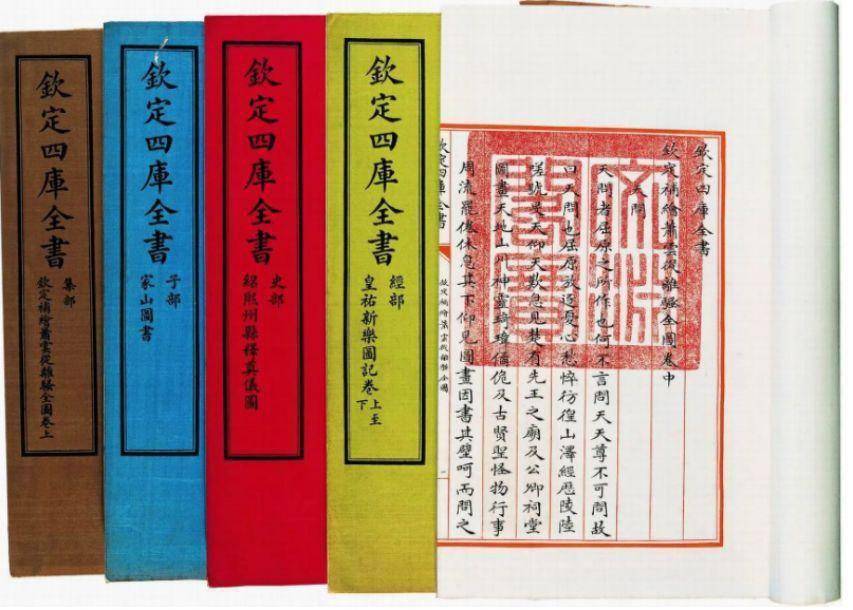 欽定四庫全書
集部
欽定補繪蕭雲從離騷全圖卷上
欽定四庫全書
子部
家山圖書
欽定四庫全書
史部
紹熙州縣釋奠儀圖
欽定四庫全書
經部
皇祐新樂圖記卷上至下
欽定四庫全書
欽定補繪蕭雲從離騷全圖卷中
天問
天問者屈原之所作也何不言問天天尊不可問故
曰天問也屈原放逐憂心愁悴彷徨山澤經歷陵陸
嗟號旻天仰天歎息見楚有先王之廟及公卿祠堂
圖畫天地山川神靈琦瑋僪佹及古賢聖怪物行事
周流罷倦休息其下仰見圖畫因書其壁呵而問之
欽定四庫全書
欽定補繪蕭雲從離騷全圖